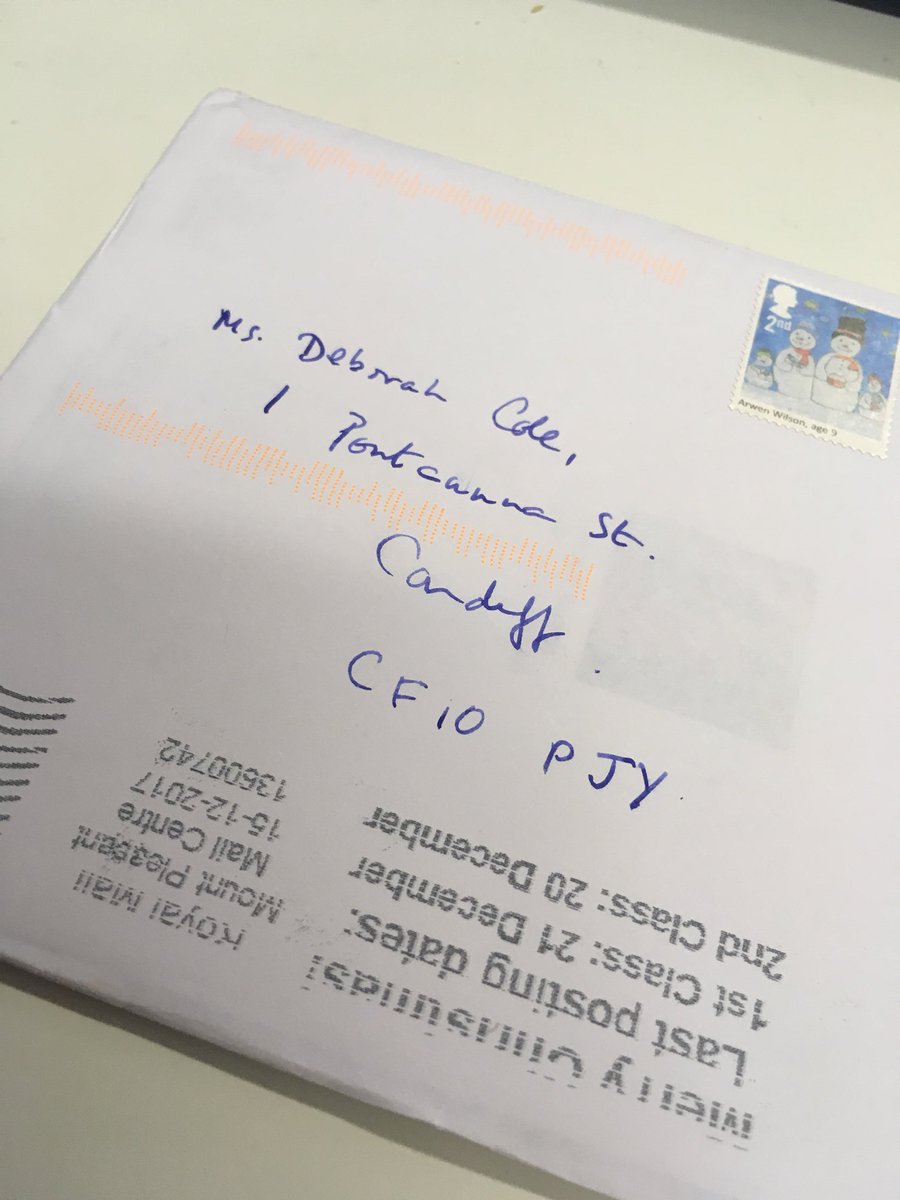 2nd
Arwen Wilson, age 9
Ms. Deborah Cole,
1 Pontcanna St.
Cardiff.
CF10 PJY
Royal Mail
Mount Pleasant
Mail Centre
15-12-2017
13600742
Merry Christmas!
Last posting dates:
1st Class: 21 December
2nd Class: 20 December